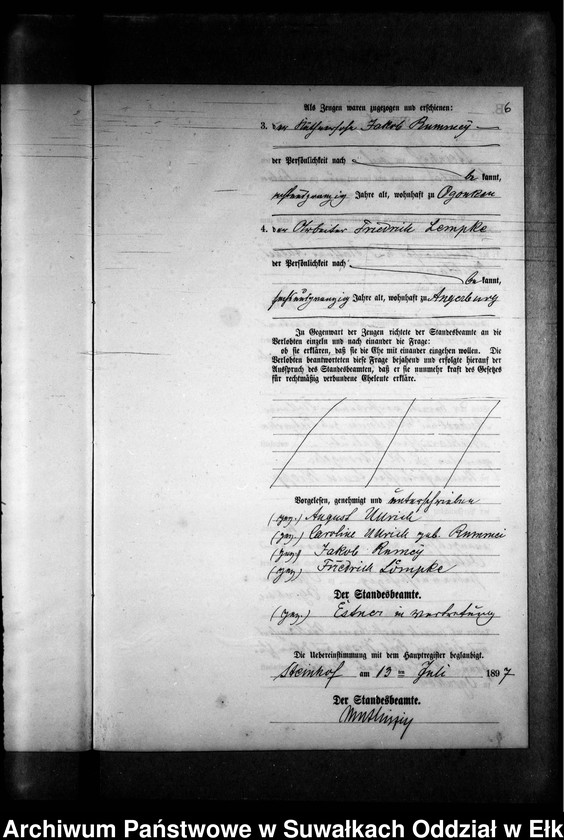 6
Als Zeugen waren zugezogen und erschienen:
3. der Käthnersohn Jakob Rummey
der Persönlichkeit nach
be kannt,
Jahre alt, wohnhaft zu Ogonken
4. der Arbeiter Friedrich Lempke
der Persönlichkeit nach
be kannt,
sechsundzwanzig Jahre alt, wohnhaft zu Angerburg
In Gegenwart der Zeugen richtete der Standesbeamte an die
Verlobten einzeln und nach einander die Frage:
ob sie erklären, daß sie die Ehe mit einander eingehen wollen. Die
Verlobten beantworteten diese Frage bejahend und erfolgte hierauf der
Ausspruch des Standesbeamten, daß er sie nunmehr kraft des Gesetzes
für rechtmäßig verbundene Eheleute erkläre.
Vorgelesen, genehmigt und unterschrieben
(gez.) August Ullrich
(gez.) Caroline Ullrich geb. Rummei
(gez.) Jakob Rumey
(gez.) Friedrich Lömpke
Der Standesbeamte.
(gez.) Estner in Vertretung
Die Uebereinstimmung mit dem Hauptregister beglaubigt.
Steinhof am 13 ten Juli 1897
Der Standesbeamte.
Archiwum Państwowe w Suwałkach Oddział w Ełk